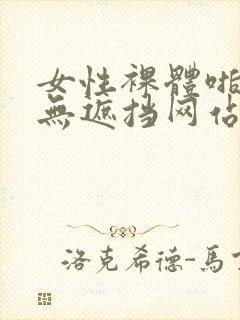 女性裸體啪
無遮挡网佔
洛克希德-馬丁